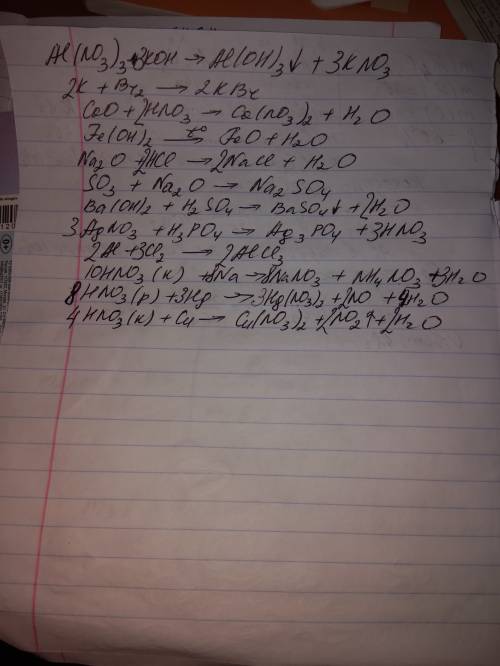 Al(NO3)3+3KOH → Al(OH)3↓ + 3KNO3
2K + Br2 → 2KBr
CaO + 2HNO3 → Ca(NO3)2 + H2O
Fe(OH)2 t° → FeO + H2O
Na2O + 2HCl → 2NaCl + H2O
SO3 + Na2O → Na2SO4
Ba(OH)2 + H2SO4 → BaSO4↓ + 2H2O
3AgNO3 + H3PO4 → Ag3PO4 + 3HNO3
2Al + 3Cl2 → 2AlCl3
10HNO3(к) + 8Na → 8NaNO3 + NH4NO3 + 3H2O
8HNO3(р) + 3Hg → 3Hg(NO3)2 + 2NO + 4H2O
4HNO3(к) + Cu → Cu(NO3)2 + 2NO2↑ + 2H2O
0+